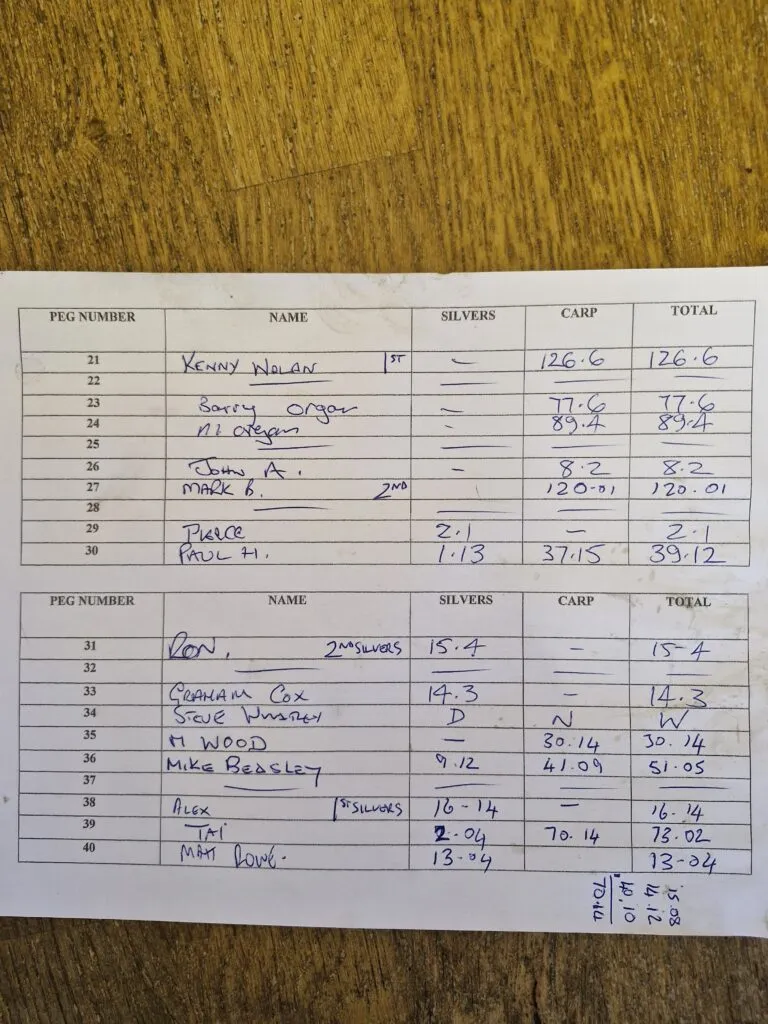 PEG NUMBER NAME SILVERS CARP TOTAL
21 KENNY NOLAN 1ST - 126.6 126.6
22
23 Barry Organ - 77.6 77.6
24 Organ - 89.4 89.4
25
26 JOHN A. - 8.2 8.2
27 MARK B. 2ND 120-01 120.01
28
29 PIERCE 2.1 - 2.1
30 PAUL H. 1.13 37.15 39.12
PEG NUMBER NAME SILVERS CARP TOTAL
31 RON. 2ND SILVERS 15.4 - 15-4
32
33 GRAHAM COX 14.3 - 14.3
34 STEVE D N W
35 M WOOD - 30.14 30.14
36 MIKE BEASLEY 9.12 41.09 51.05
37
38 ALEX 1ST SILVERS 16-14 - 16.14
39 TAI 2.04 70.14 73.02
40 MATT ROWE. 13-04 13-04
15.08
14.12
40.10
70.14